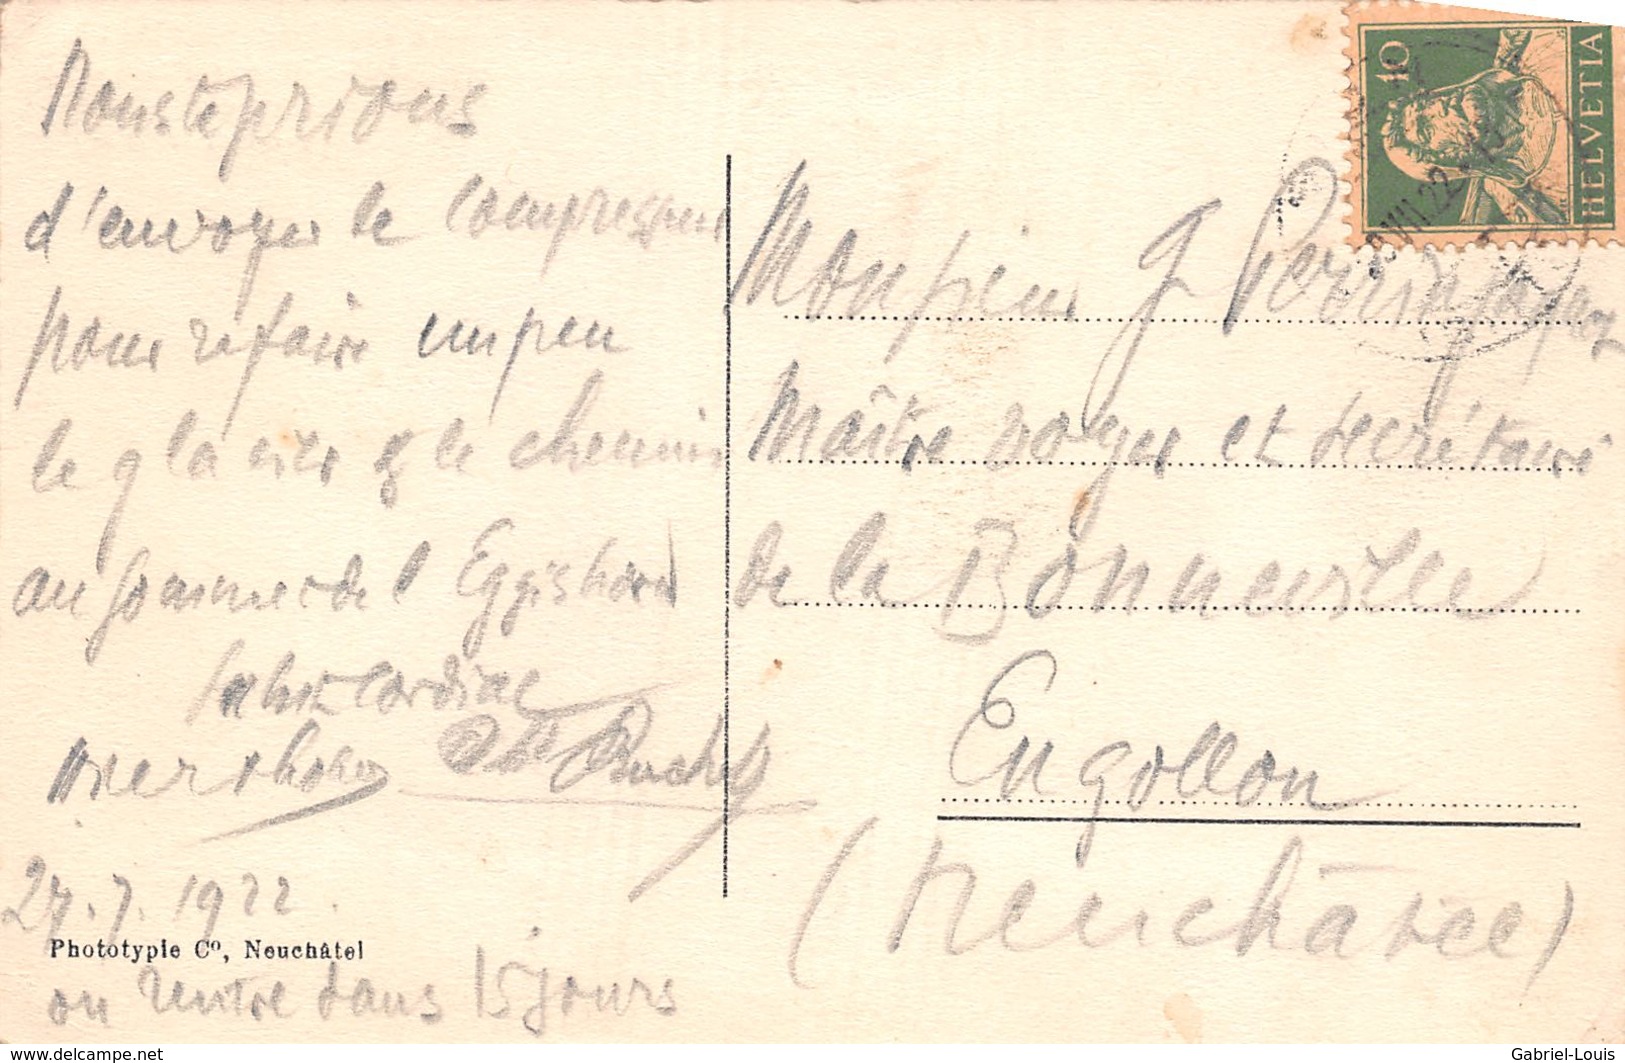 Nous te prions
d'envoyer le compresseur
pour refaire un peu
le glacier & le chemin
au sommet de l'Eggishorn
Salut cordial
27.7.1922
Phototypie Co, Neuchâtel
on rentre dans 15 jours
10
HELVETIA
VII.22
Monsieur J Perrinjaquet
Maître voyer et secrétaire
de la Bonneville
Engollon
(Neuchâtel)
www.delcampe.net
Gabriel-Louis